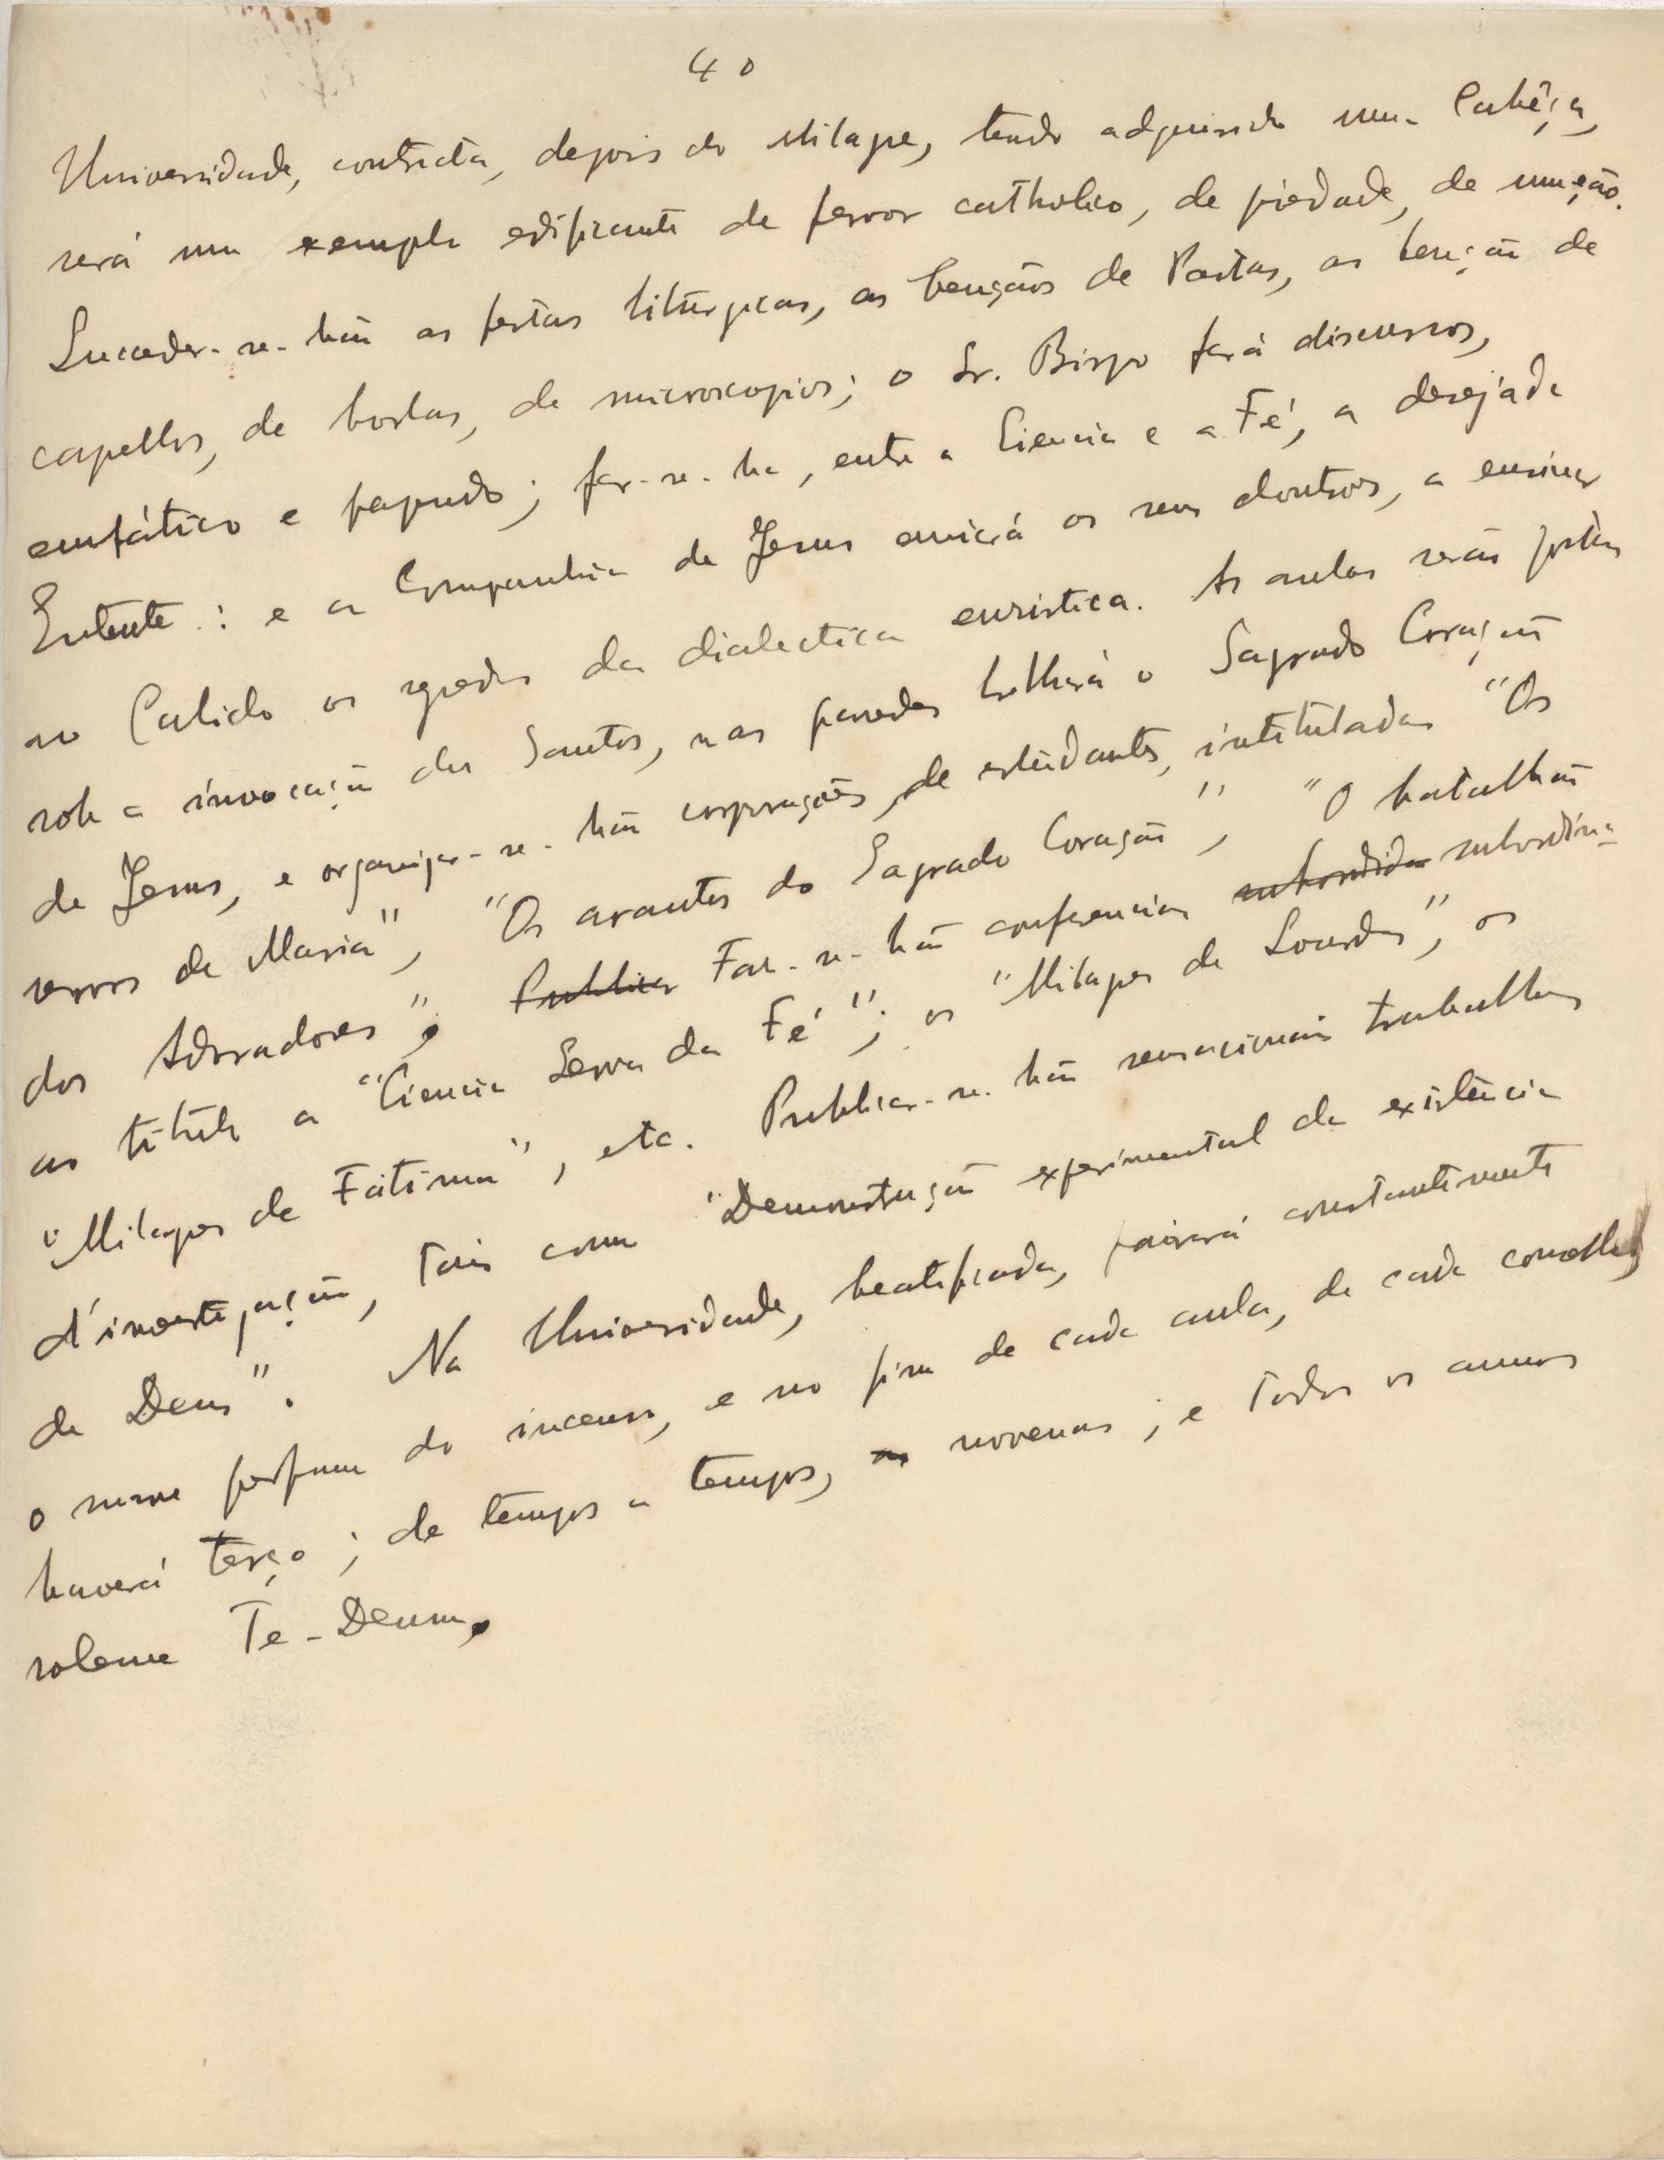 40
Universidade, contricta, depois do Milagre, tendo adquirido uma Cabêça,
será um exemplo edificante de fervor catholico, de piedade, de unção.
Succeder-se-hão as festas litúrgicas, as bençãos de Pastas, as benção de
capellos, de borlas, de microscopios; o Sr. Bispo fará discursos,
emfático e papudo; far-se-ha, entre a Ciencia e a Fé, a desejada
Entente: e a Companhia de Jesus enviará os seus doutores, a ensinar
no Cabido os segredos da dialectica eurística. As aulas serão postas
sob a invocação dos Santos, nas paredes brilhará o Sagrado Coração
de Jesus, e organizar-se-hão corporações de estudantes, intituladas "Os
servos de Maria", "Os arautos do Sagrado Coração", "O batalhão
dos Adoradores". Publicar Far-se-hão conferencias subordidas subordina-
as título a "Ciencia Serva da Fé"; os "Milagres de Lourdes", os
"Milagres de Fátima", etc. Publicar-se-hão sensacionais trabalhos
d'investigação, tais como "Demonstração experimental da existência
de Deus". Na Universidade, beatificada, pairará constantemente
o suave perfume do incenso, e no fim de cada aula, de cada conselho,
haverá terço; de tempos a tempos, as novenas; e todos os annos
solemne Te-Deum.